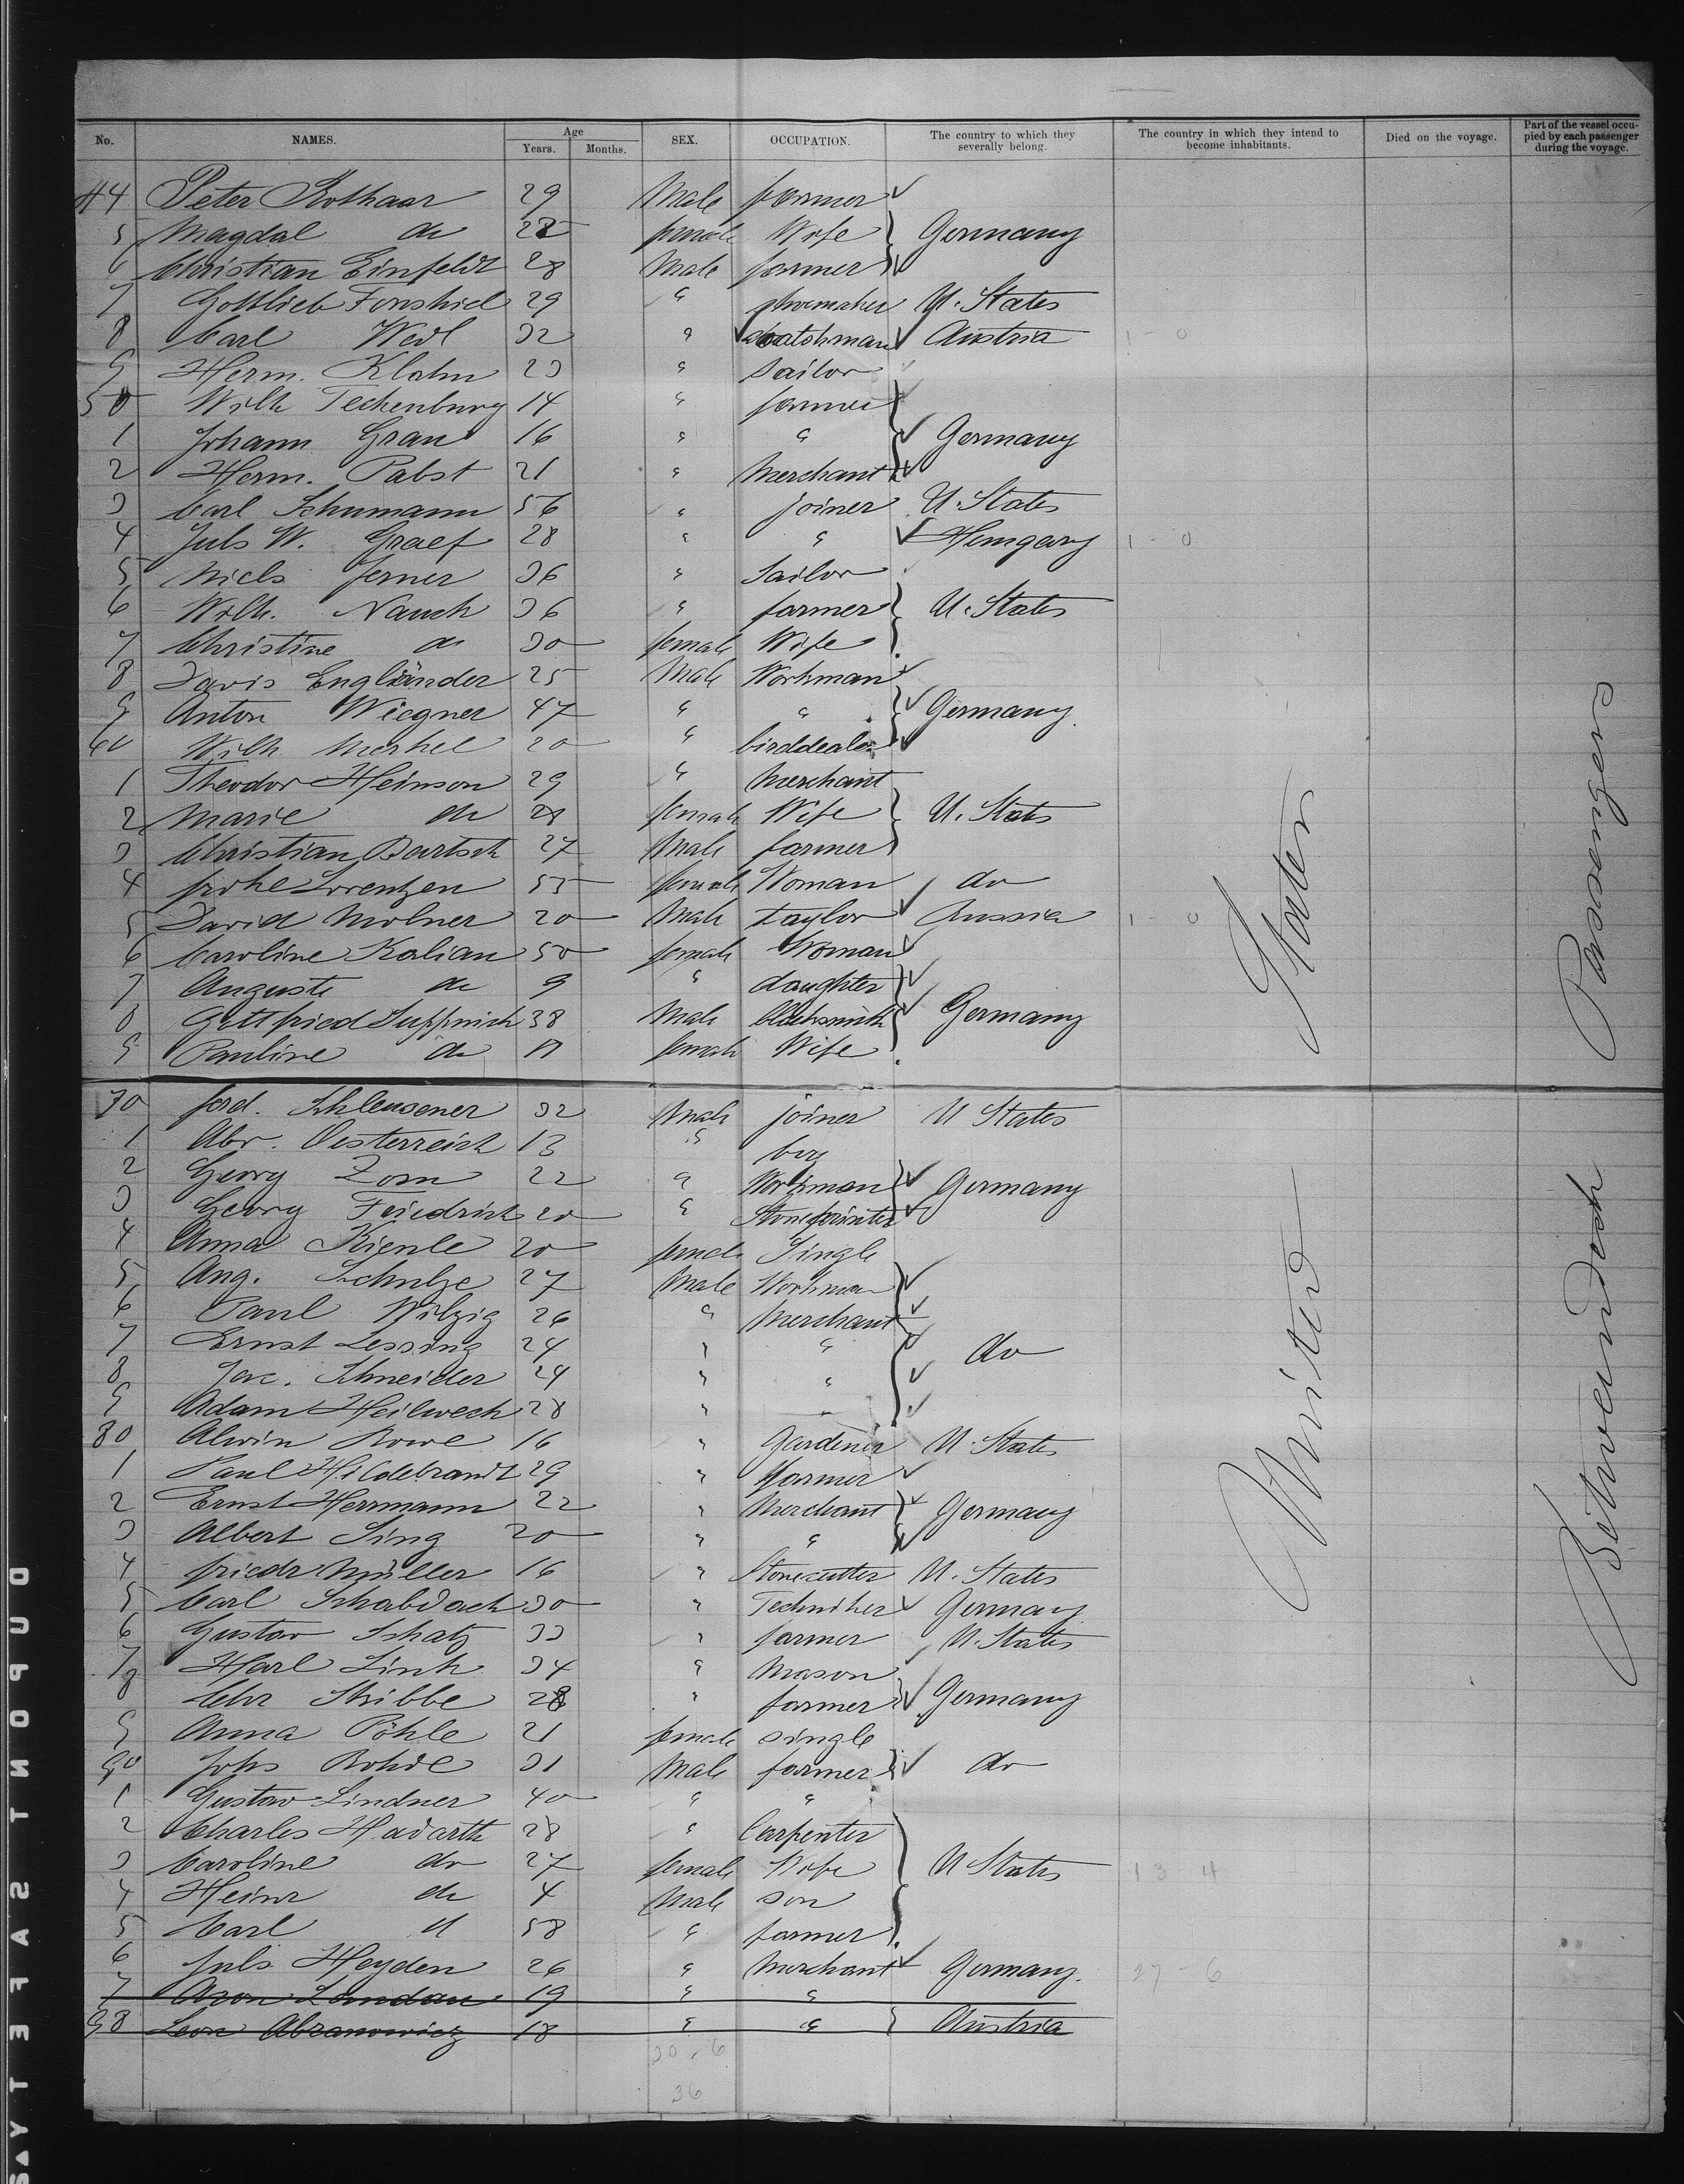 No. NAMES. Age Years. Months. SEX. OCCUPATION. The country to which they severally belong. The country in which they intend to become inhabitants. Died on the voyage. Part of the vessel occupied by each passenger during the voyage.
44 Peter Rothaar 29 Male farmer
5 Magdal do 28 female Wife Germany
6 Christian Einfeldt 28 Male farmer
7 Gottlieb 29 " shoemaker U. States
8 Carl Weil 32 " watchman Austria 1 - 0
9 Herm. Klahn 23 " Sailor
50 Wilh Teckenburg 14 " farmer
1 Johann Grau 16 " " Germany
2 Herm. Pabst 21 " Merchant
3 Carl Schumann 56 " joiner U. States
4 Juls W. Graef 28 " " Hungary 1 - 0
5 Niels Jerner 36 " Sailor
6 Wilh. Nauck 36 " farmer U. States
7 Christine do 30 female Wife
8 Davis Engländer 25 Male Workman
9 Anton Wiegner 47 " " Germany
60 Wilh Merkel 20 " birddealer
1 Theodor Heinson 29 " Merchant
2 Marie do 28 female Wife U. States
3 Christian Bartsch 27 Male farmer
4 Lorentzen 55 female Woman do
5 David Molner 20 Male taylor Russia 1 - 0
6 Caroline Kalian 50 female Woman
7 Auguste do 9 " daughter
8 Gottfried 38 Male blacksmith Germany
9 Pauline do female Wife
70 Ferd. Schleusener 32 Male joiner U States
1 Abr. Oesterreich 13 " boy
2 Georg Zorn 22 " Workman Germany
3 Georg Friedrich 20 " Stoneprinter
4 Anna Kienle 20 female Single
5 Aug. Schulze 27 Male Workman
6 Paul Wilzig 26 " Merchant
7 Ernst Lessing 24 " " do
8 Jac. Schneider 24 " "
9 Adam Heilweck 28 " "
80 Alwin Rowe 16 " gardener U. States
1 Paul Hildebrandt 29 " farmer
2 Ernst Herrmann 22 " Merchant Germany
3 Albert Sing 20 " "
4 Friedr Müller 16 " Stonecutter U. States
5 Carl Schabdach 30 " Techniker Germany
6 Gustav Schatz 33 " farmer U. States
7 Karl Link 34 " mason
8 Chr Stibbe 28 " farmer Germany
9 Anna Pöhle 21 female single
90 Johs Rohde 31 Male farmer do
1 Gustav Lindner 40 " "
2 Charles Hadarth 28 " Carpenter
3 Caroline do 27 female Wife U States 13 - 4
4 Heinr do 4 Male son
5 Carl d 58 " farmer
6 Juls Heyden 26 " Merchant Germany. 27 - 6
7 Aron Landau 19 " "
98 Leon Abranowicz 18 " " Austria
30 - 6
36
United States
Betweendeck Passengers